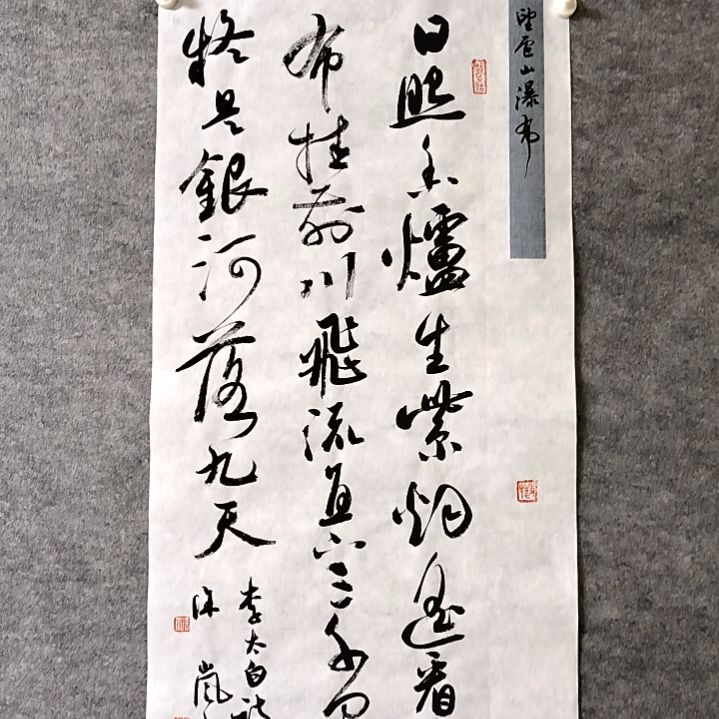 望庐山瀑布
日照香爐生紫烟遥看
布挂前川飛流直下三千
疑是銀河落九天
李太白詩
嵐